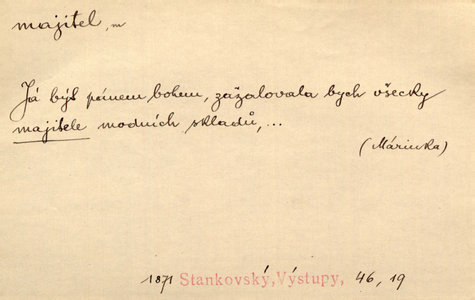 majitel, m
Já být pánem bohem, zažalovala bych všecky
majitele modních skladů,...
(Márinka)
1871 Stankovský, Výstupy, 46, 19